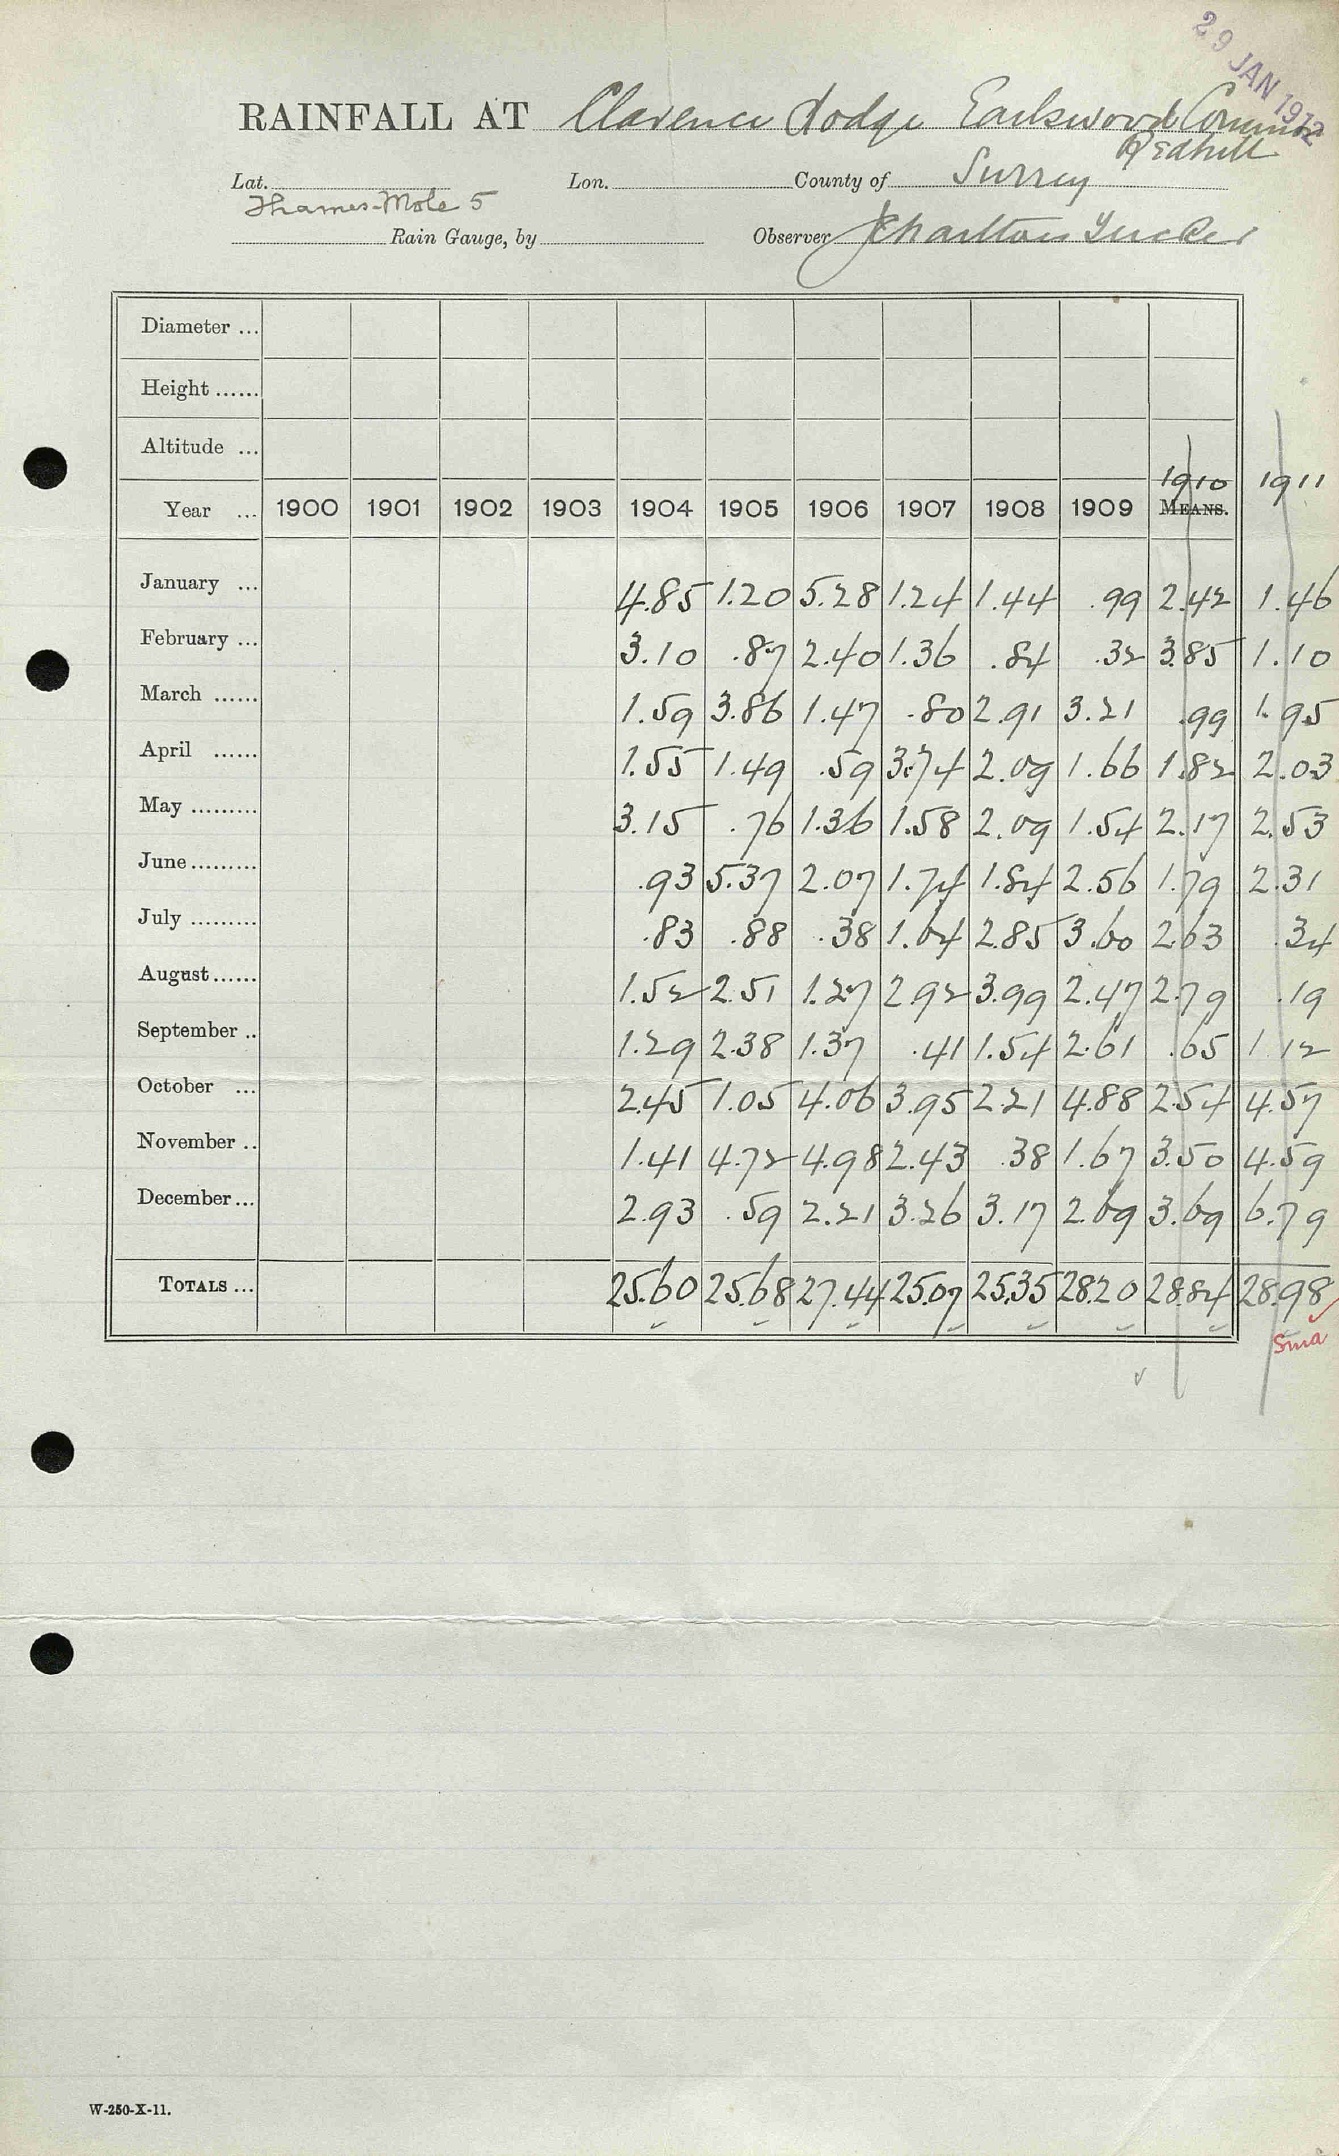 29 JAN 1912
RAINFALL AT Clarence Lodge Earlswood Common
Redhill
Lat. Lon. County of Surrey
Thames-Mole 5
Rain Gauge, by Observer J Charlton Tucker
Diameter ...
Height ......
Altitude ...
1910 1911
Year ... 1900 1901 1902 1903 1904 1905 1906 1907 1908 1909 MEANS.
January ... 4.85 1.20 5.28 1.24 1.44 .99 2.42 1.46
February ... 3.10 .87 2.40 1.36 .84 .32 3.85 1.10
March ...... 1.59 3.86 1.47 .80 2.91 3.21 .99 1.95
April ...... 1.55 1.49 .59 3.74 2.09 1.66 1.82 2.03
May ......... 3.15 .76 1.36 1.58 2.09 1.54 2.17 2.53
June ......... .93 5.37 2.07 1.74 1.84 2.56 1.79 2.31
July ......... .83 .88 .38 1.64 2.85 3.60 2.63 .34
August ...... 1.52 2.51 1.27 2.92 3.99 2.47 2.79 .19
September .. 1.29 2.38 1.37 .41 1.54 2.61 .65 1.12
October ... 2.45 1.05 4.06 3.95 2.21 4.88 2.54 4.57
November .. 1.41 4.72 4.98 2.43 .38 1.67 3.50 4.59
December ... 2.93 .59 2.21 3.26 3.17 2.69 3.69 6.79
TOTALS ... 25.60 25.68 27.44 25.07 25.35 28.20 28.84 28.98
Sma
W-250-X-11.